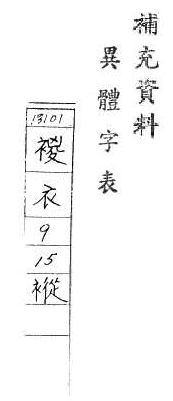 補充資料
異體字表
13101
衣
9
15